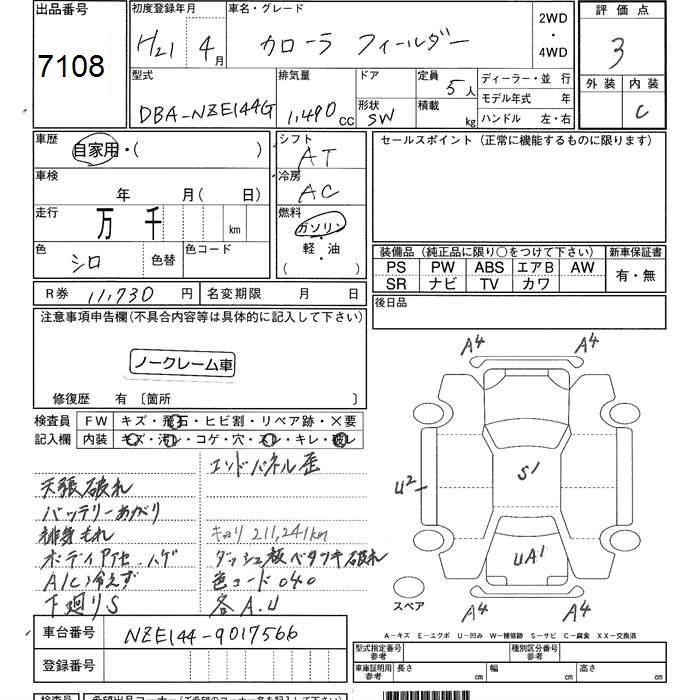 出品番号
7108
初度登録年月
H21 4月
車名・グレード
カローラ フィールダー
2WD
・
4WD
評価点
3
型式
DBA-NZE144G
排気量
1,490cc
ドア
形状
SW
定員
5人
積載
kg
ディーラー・並 行
モデル年式 年
ハンドル 左・右
外装 内装
C
車歴
自家用・( )
シフト
AT
車検
年 月(日)
冷房
AC
走行
万 千 km
燃料
ガソリン
軽・油
( )
色
シロ
色替
色コード
セールスポイント (正常に機能するものに限ります)
装備品 (純正品に限り○をつけて下さい)
新車保証書
PS PW ABS エアB AW
SR ナビ TV カワ
有・無
R券 11,730 円
名変期限 月 日
後日品
注意事項申告欄(不具合内容等は具体的に記入して下さい)
ノークレーム車
修復歴 有 〔箇所 〕
検査員
記入欄
FW キズ・飛石・ヒビ割・リペア跡・×要
内装 キズ・汚レ・コゲ・穴・スレ・キレ・破レ
エンドパネル歪
天張破れ
バッテリーあがり
排気もれ
キョリ 211,241km
ボディアセ、ハゲ
ダッシュ板ベタツキ破れ
A/C冷えず
色コード040
下廻りS
各A.U
A4 A4
U2
S1
UA1
A4 A4
スペア
A-キズ E-エクボ U-凹み W-補修跡 S-サビ C-腐食 XX-交換済
車台番号
NZE144-9017566
登録番号
型式指定番号
参考
種別区分番号
参考
車庫証明用
参考
長さ cm
幅 cm
高さ cm
検査員
希望出品コーナー